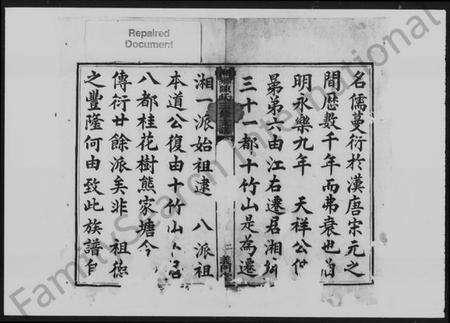 Repaired
Document
名儒蔓衍於漢唐宋元之
間歷數千年而弗衰也
明永樂九年 天祥公
弟六由江右遷居湘
三十一都十竹山是為遷
湘一派始祖逮 八派祖
本道公復由十竹山
八都桂花樹熊家塘今
傳衍廿餘派矣非 祖德
之豐隆何由致此族譜自
二
Family Sharon International